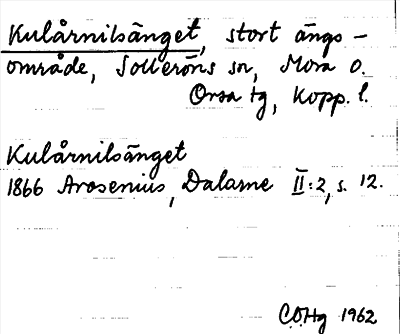 Kulårnilsänget, stort ängs-
område, Solleröns sn, Mora o.
Orsa tg, Kopp. l.
Kulårnilsänget
1866 Arosenius, Dalarne II:2, s. 12.
COHg 1962